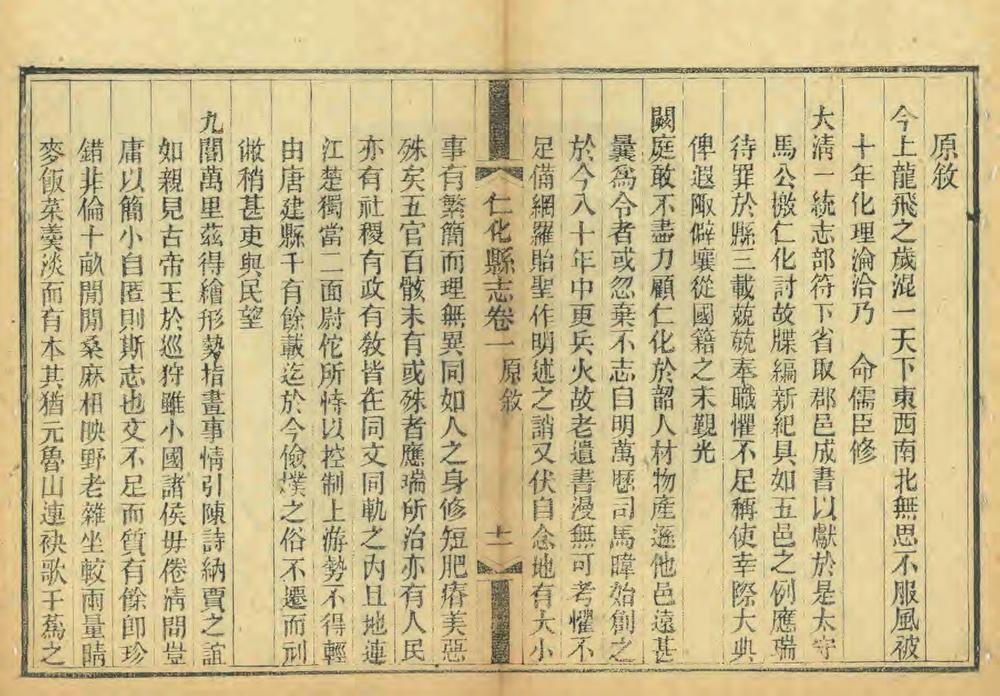 原敘
今上龍飛之歲混一天下東西南北無思不服風被
十年化理淪洽乃　命儒臣修
大淸一統志部符下省取郡邑成書以獻於是太守
馬公檄仁化討故牒編新紀具如五邑之例應瑞
待罪於縣三載兢兢奉職懼不足稱使幸際大典
俾遐陬僻壤從國籍之末覲光
闕庭敢不盡力顧仁化於韶人材物產遜他邑遠甚
曩爲令者或忽棄不志自明萬曆司馬暐始創之
於今八十年中更兵火故老遺書漫無可考懼不
足備網羅貽聖作明述之誚又伏自念地有大小
仁化縣志卷一　原敘　十一
事有繁簡而理無異同如人之身修短肥瘠美惡
殊矣五官百骸未有或殊者應瑞所治亦有人民
亦有社稷有政有敎皆在同文同軌之內且地連
江楚獨當二面尉佗所恃以控制上游勢不得輕
由唐建縣千有餘載迄於今儉樸之俗不遷而
稍甚吏與民望
九閽萬里茲得繪形勢指畫事情引陳詩納賈之誼
如親見古帝王於巡狩雖小國諸侯毋倦淸問豈
庸以簡小自匿則斯志也文不足而質有餘卽珍
錯非倫十畝閒閒桑麻相映野老雜坐較雨量晴
麥飯菜羹淡而有本其猶元魯山連袂歌于蒍之